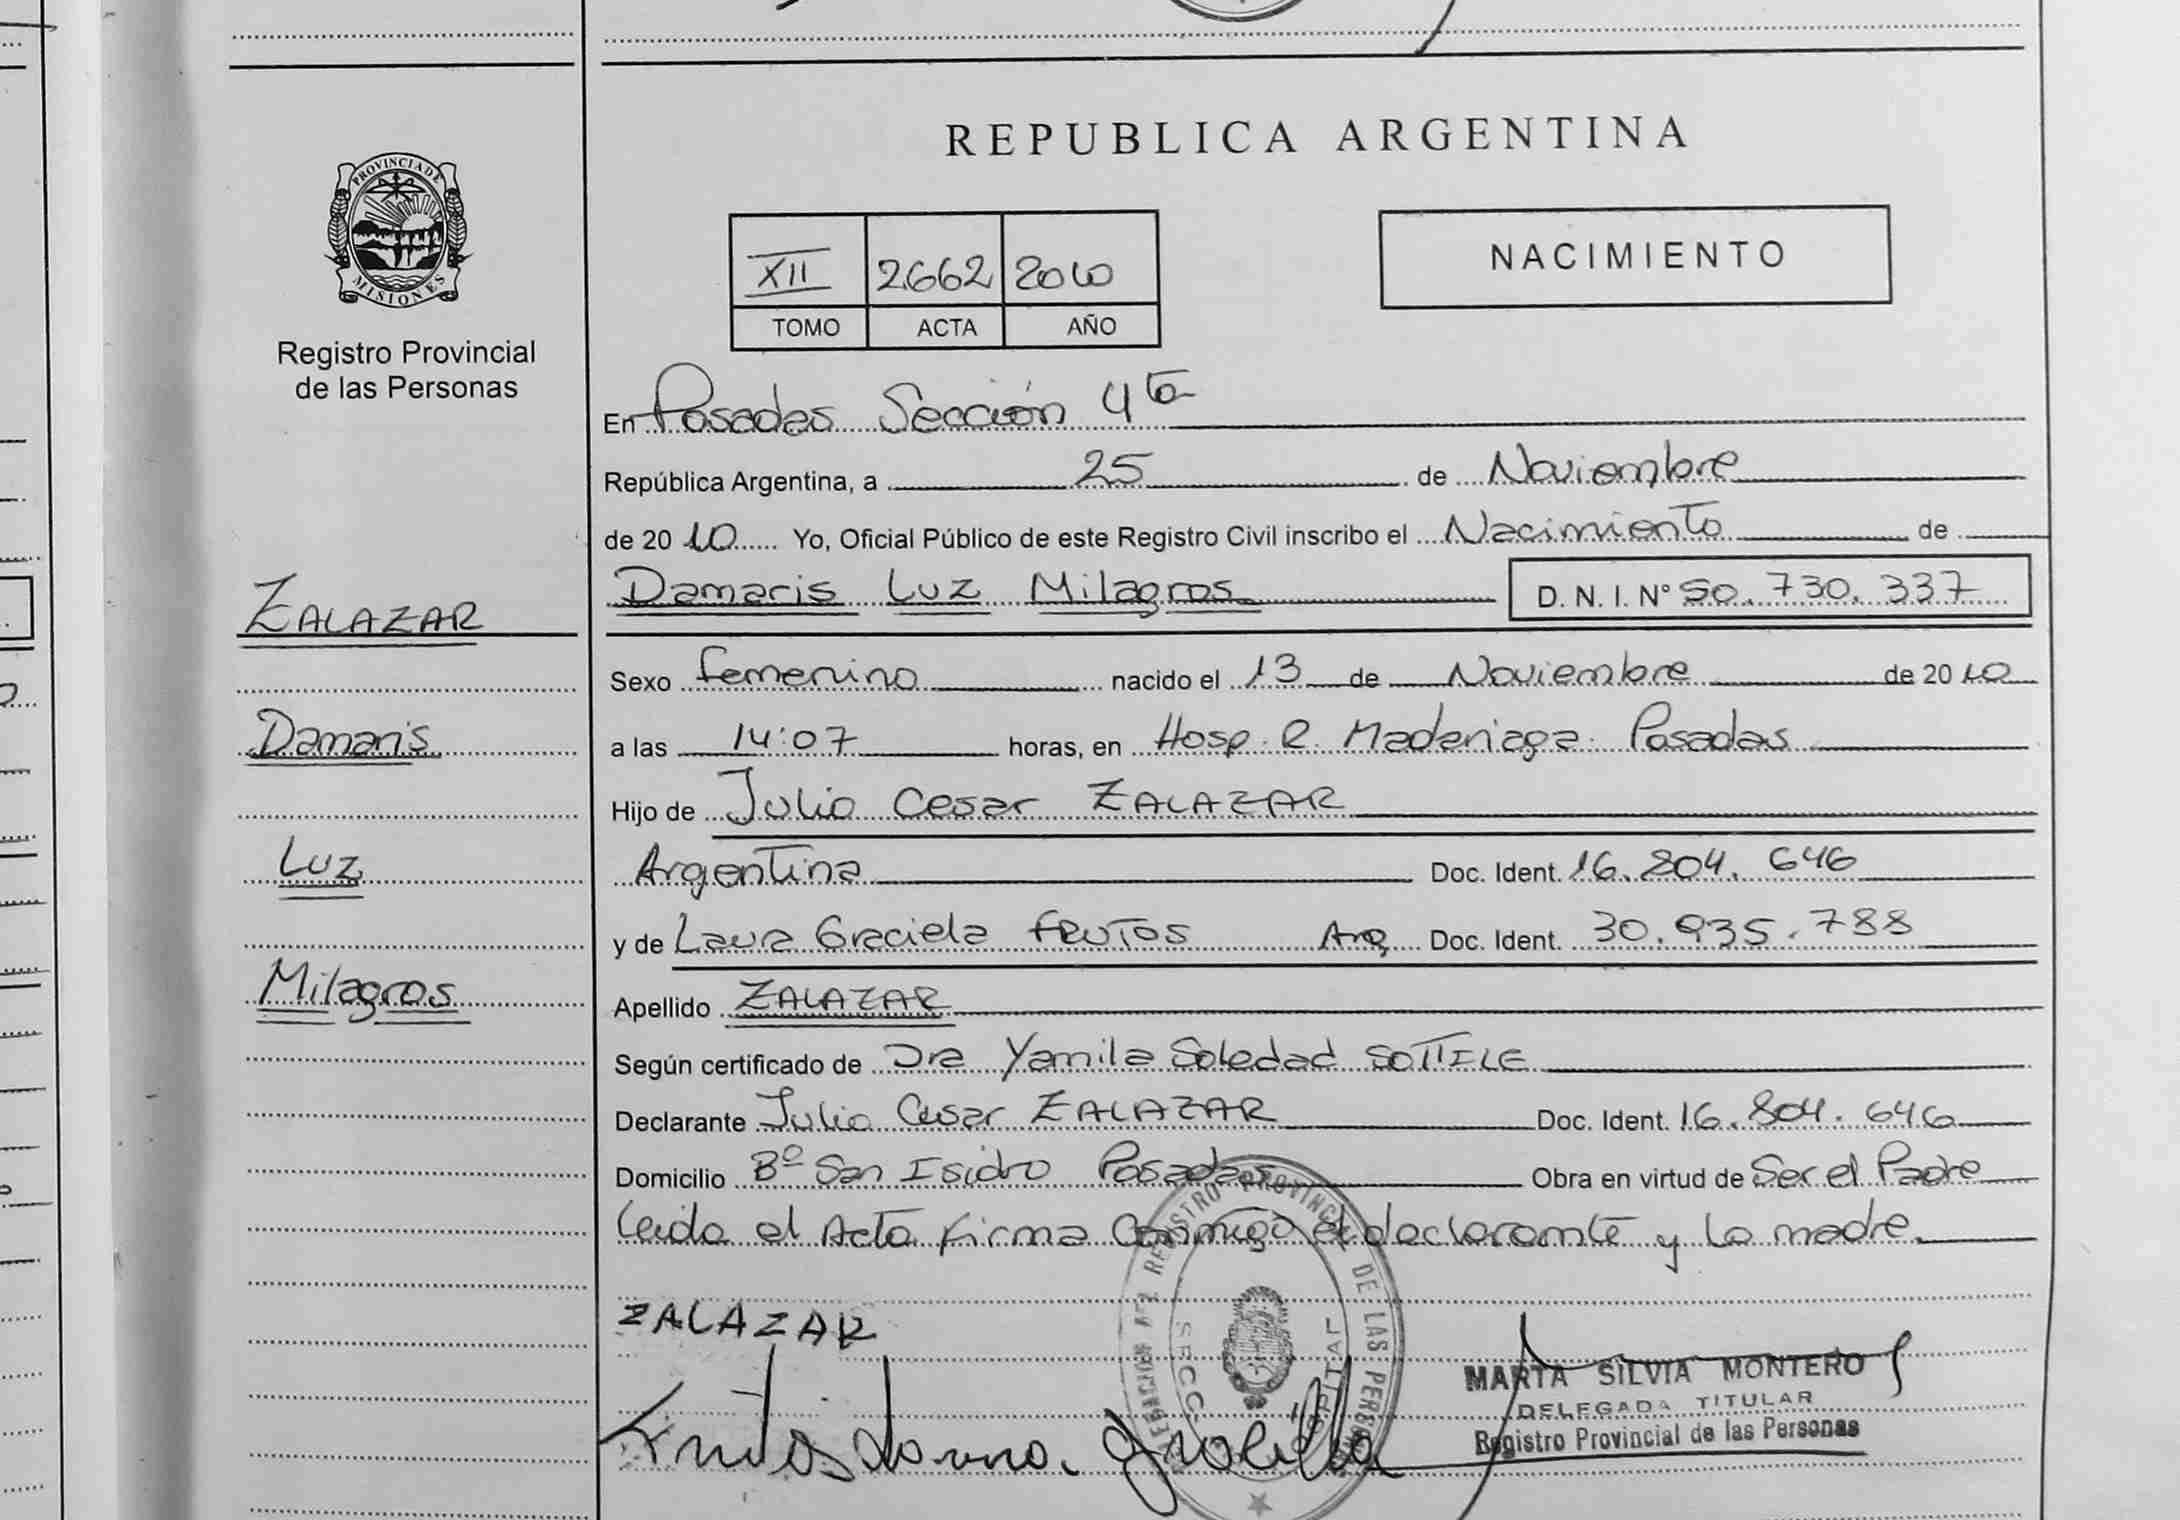 REPUBLICA ARGENTINA
PROVINCIA DE
MISIONES
Registro Provincial
de las Personas
XII 2662 2010
TOMO ACTA AÑO
NACIMIENTO
En Posadas Sección 4ta
República Argentina, a 25 de Noviembre
de 2010 Yo, Oficial Público de este Registro Civil inscribo el Nacimiento de
Damaris Luz Milagros D. N. I. N° 50.730.337
ZALAZAR
Damaris
Luz
Milagros
Sexo femenino nacido el 13 de Noviembre de 2010
a las 14:07 horas, en Hosp. R. Madariaga. Posadas
Hijo de Julio Cesar ZALAZAR
Argentina Doc. Ident. 16.804.646
y de Laura Graciela FRUTOS Arg Doc. Ident. 30.935.788
Apellido ZALAZAR
Según certificado de Dra Yamila Soledad SOTTILE
Declarante Julio Cesar ZALAZAR Doc. Ident. 16.804.646
Domicilio Bº San Isidro Posadas Obra en virtud de Ser el Padre
Leida el Acta firma conmigo el declarante y la madre.
ZALAZAR
REGISTRO PROVINCIAL DE LAS
MARTA SILVIA MONTERO
DELEGADA TITULAR
Registro Provincial de las Personas